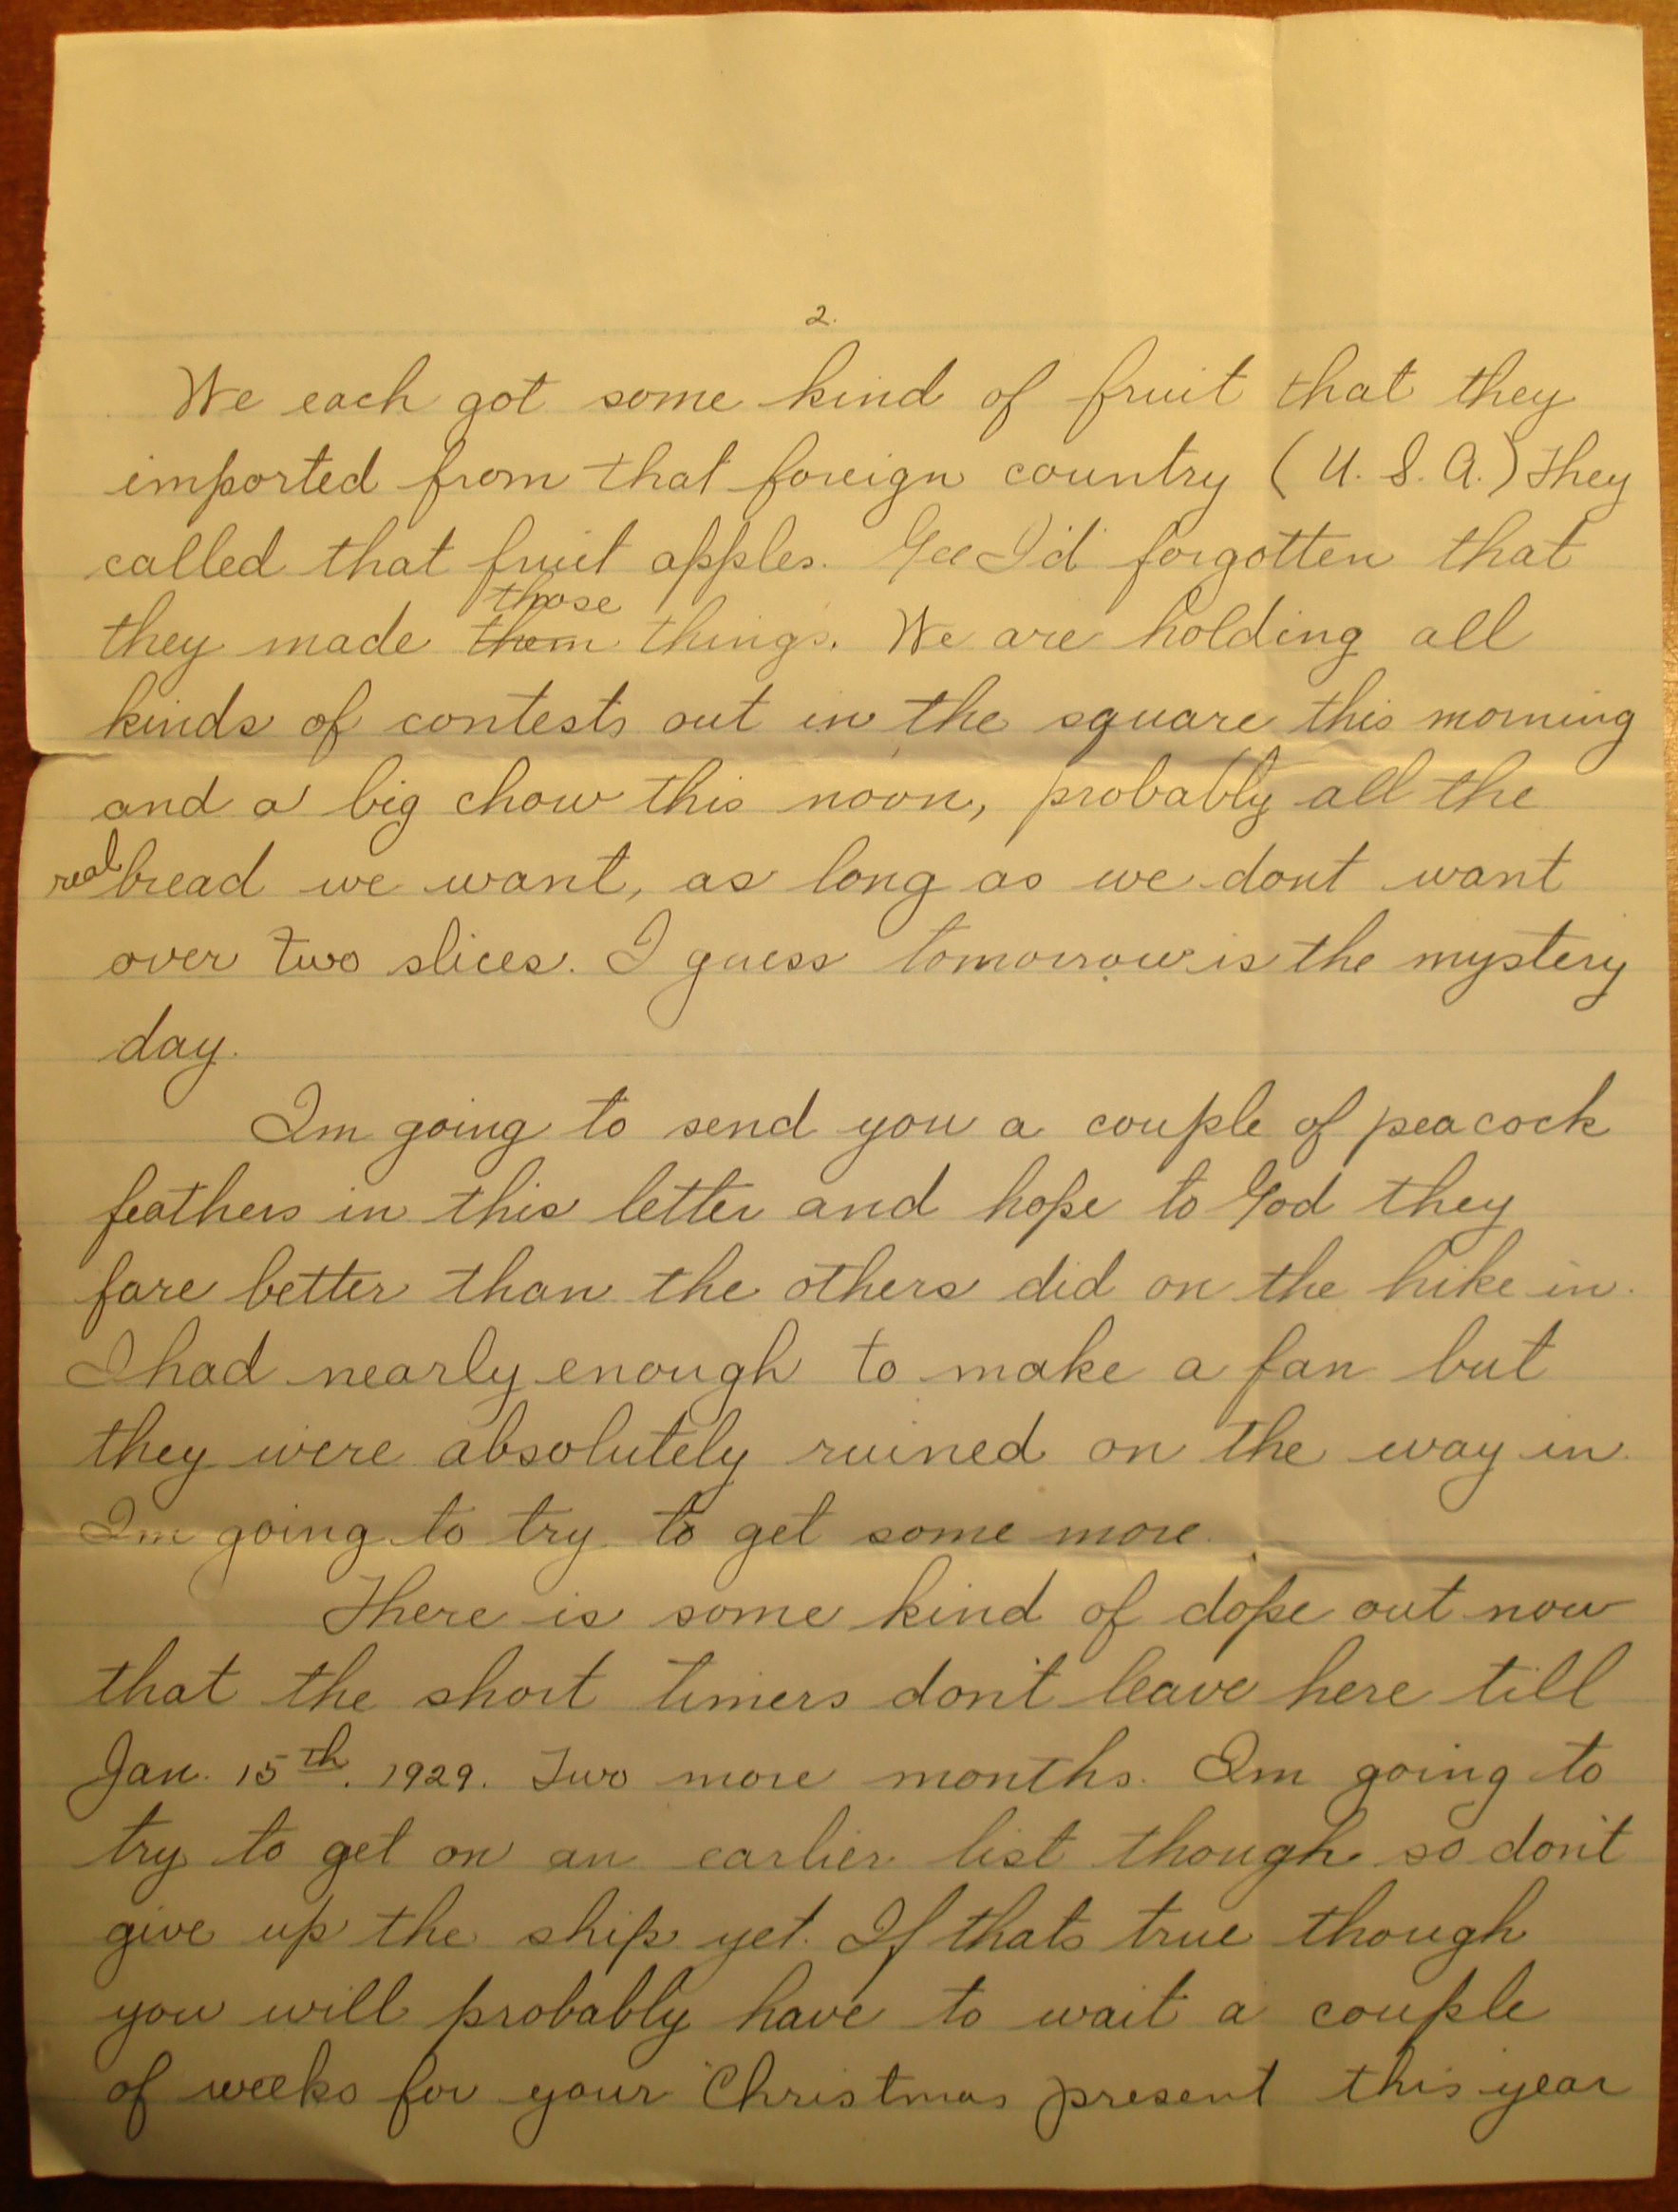 2.
We each got some kind of fruit that they
imported from that foreign country (U.S.A.) They
called that fruit apples. Gee I'd forgotten that
those
they made them things. We are holding all
kinds of contests out in the square this morning
and a big chow this noon, probably all the
real bread we want, as long as we dont want
over two slices. I guess tomorrow is the mystery
day.
Im going to send you a couple of peacock
feathers in this letter and hope to God they
fare better than the others did on the hike in.
I had nearly enough to make a fan but
they were absolutely ruined on the way in.
Im going to try to get some more.
There is some kind of dope out now
that the short timers don't leave here till
Jan. 15th. 1929. Two more months. Im going to
try to get on an earlier list though so don't
give up the ship yet. If thats true though
you will probably have to wait a couple
of weeks for your Christmas present this year